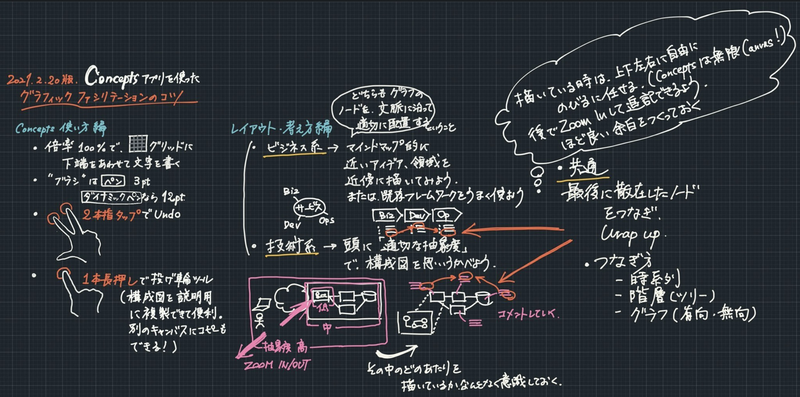 2021.2.20版. Concepts アプリを使った
グラフィック ファシリテーションのコツ
Concepts 使い方編
・倍率100%で、グリッドに
下端をあわせて文字を書く
・"ブラシ"は ペン 3pt
ダイナミックペン なら 12pt
・2本指タップでUndo
・1本長押しで投げ縄ツール
(構成図を説明用
に複製できて便利。
別のキャンバスにコピーも
できる!)
レイアウト・考え方編
どちらも グラフの
ノードを、文脈に沿って
適切に配置する
ということ
・ビジネス系 → マインドマップ的に
近いアイデア、領域を
近傍に描いてみよう.
または、既存フレームワークをうまく使おう
Biz
サービス
Dev
Ops
Biz
Dev
Op
・技術系 → 頭に「適切な抽象度」
で、構成図を思いうかべよう.
Biz
低
中
抽象度 高
ZOOM IN/OUT
コメントしていく.
その中のどのあたりを
描いているか、なんとなく意識しておく.
描いている時は、上下左右に自由に
のびるに任せる. (Conceptsは無限Canvas!)
後でZoom Inして追記できるよう.
ほど良い余白をつくっておく
・共通
最後に散在したノード
をつなぎ.
Wrap up.
・つなぎ方
- 時系列
- 階層(ツリー)
- グラフ(有向・無向)